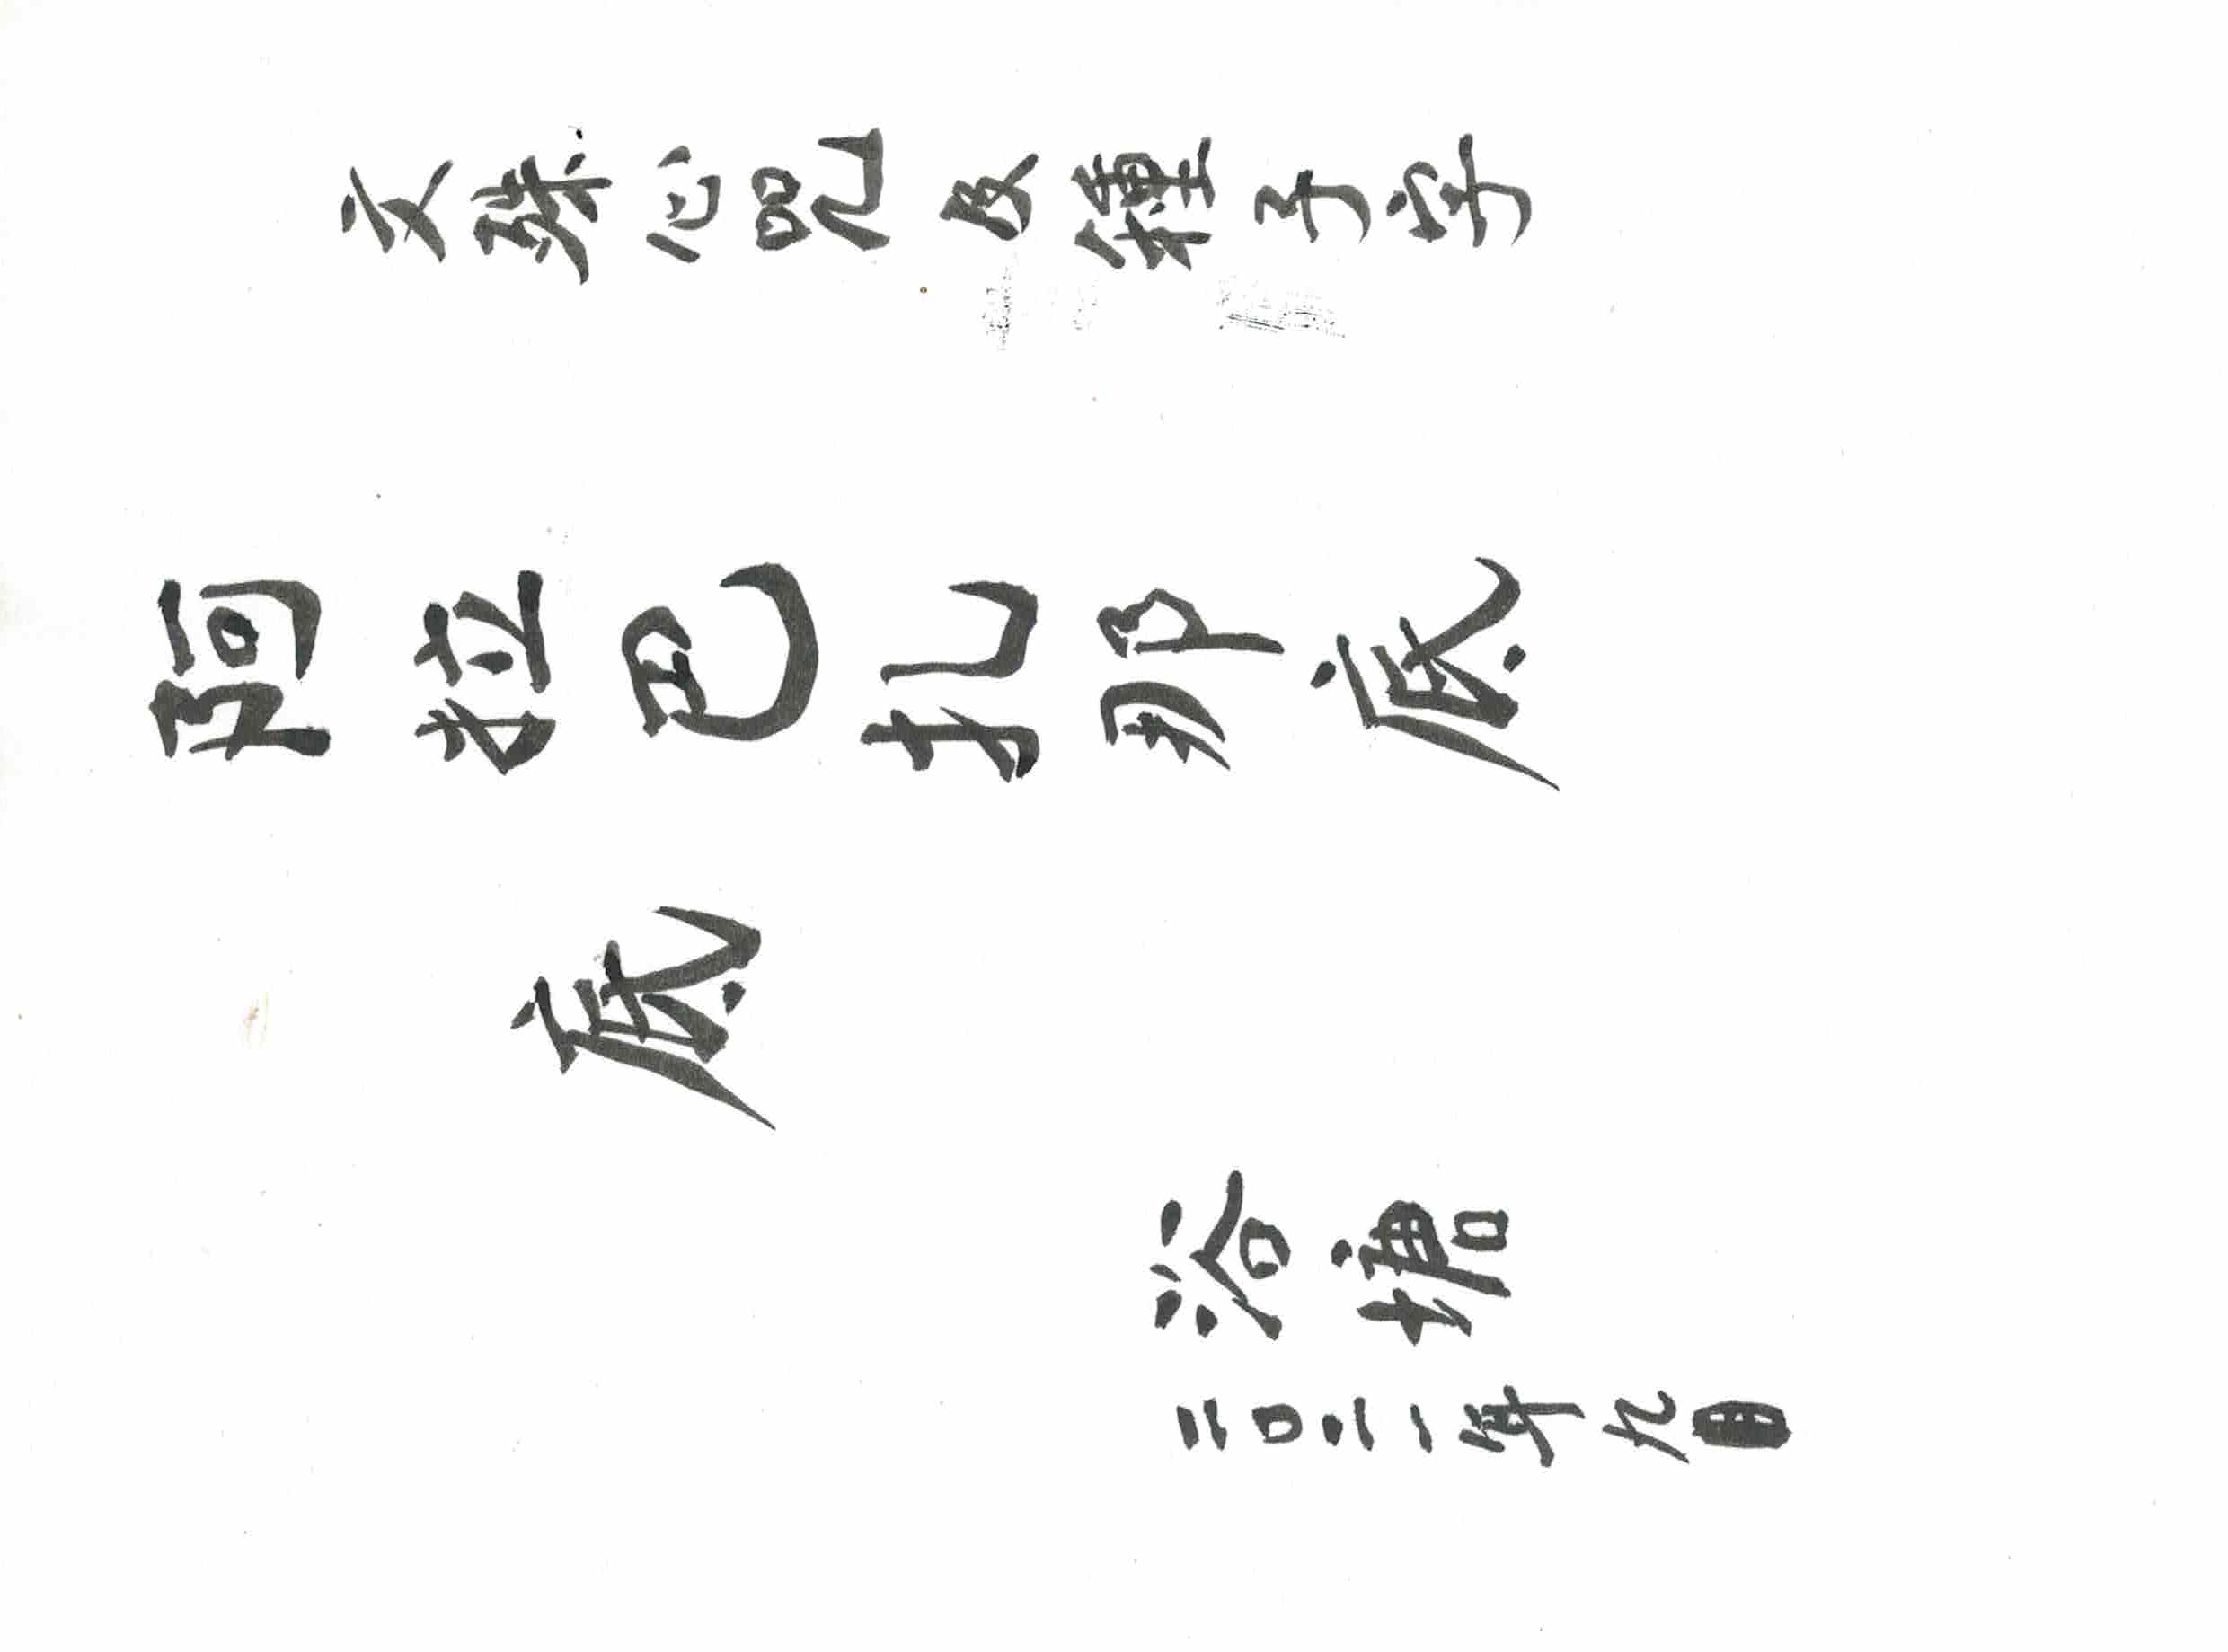 文殊心咒及種子字
阿拉巴扎那底
底
浴塘
二〇二一年九月